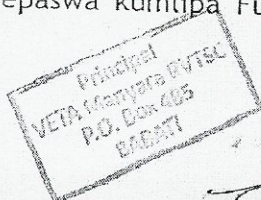 epaswa kumlipa Fu
Principal
VETA Manyara RVTSC
P.O. Box 485
BABATI